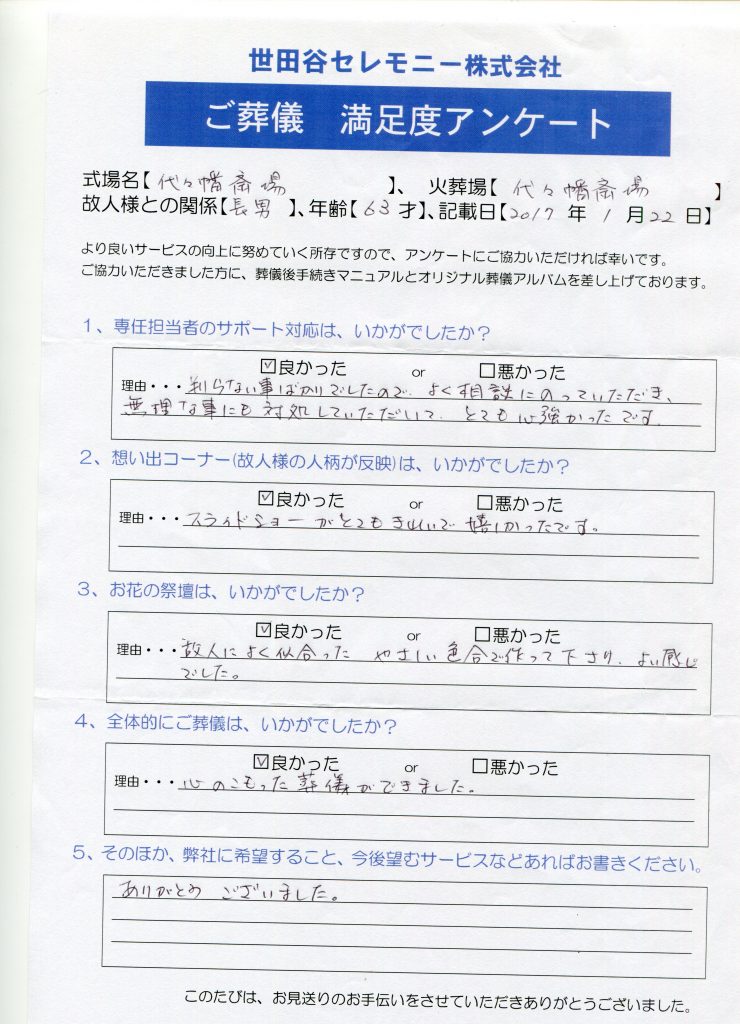 世田谷セレモニー株式会社
ご葬儀 満足度アンケート
式場名【代々幡斎場】、火葬場【代々幡斎場】
故人様との関係【長男】、年齢【63才】、記載日【2017年1月22日】
より良いサービスの向上に努めていく所存ですので、アンケートにご協力いただければ幸いです。
ご協力いただきました方に、葬儀後手続きマニュアルとオリジナル葬儀アルバムを差し上げております。
1、専任担当者のサポート対応は、いかがでしたか？
☑良かった or □悪かった
理由・・・判らない事ばかりでしたので、よく相談にのっていただき、
無理な事にも対処していただいて、とても心強かったです。
2、想い出コーナー(故人様の人柄が反映)は、いかがでしたか？
☑良かった or □悪かった
理由・・・スライドショーがとてもきれいで嬉しかったです。
3、お花の祭壇は、いかがでしたか？
☑良かった or □悪かった
理由・・・故人によく似合った やさしい色合で作って下さり、よい感じ
でした。
4、全体的にご葬儀は、いかがでしたか？
☑良かった or □悪かった
理由・・・心のこもった葬儀ができました。
5、そのほか、弊社に希望すること、今後望むサービスなどあればお書きください。
ありがとう ございました。
このたびは、お見送りのお手伝いをさせていただきありがとうございました。